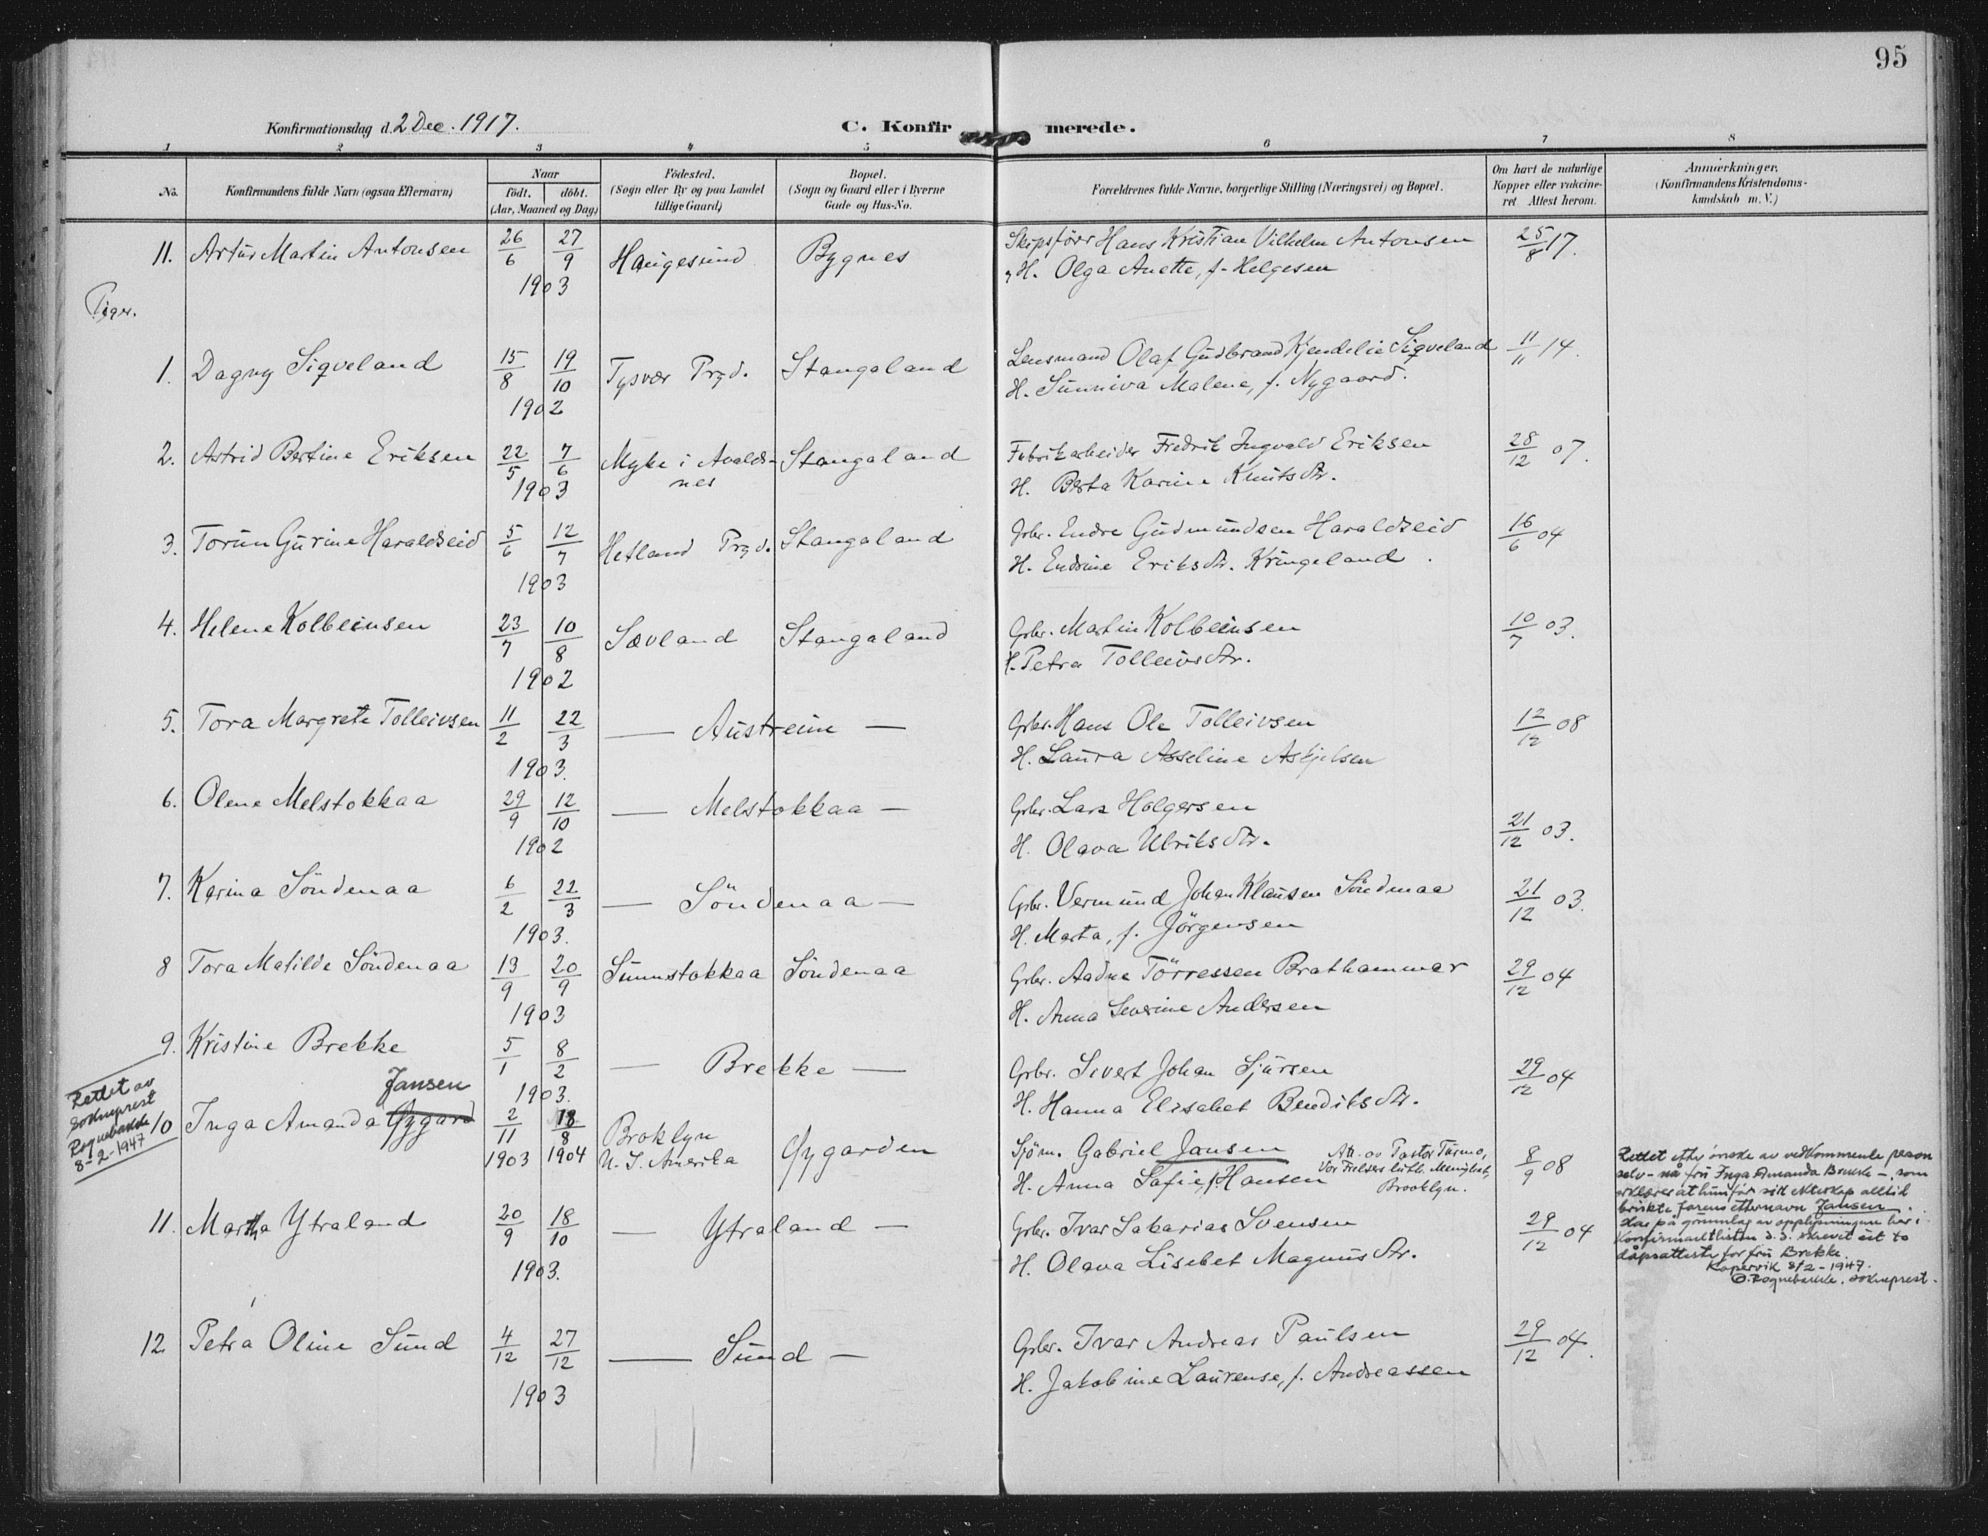 95
Konfirmationsdag d. 2 Dec. 1917.
C. Konfirmerede.
1 2 3 4 5 6 7 8
No.
Konfirmandens fulde Navn (ogsaa Efternavn)
Naar
født. døbt.
(Aar, Maaned og Dag)
Födested.
(Sogn eller By og paa Landet
tillige Gaard)
Bopæl.
(Sogn og Gaard eller i Byerne
Gade og Hus-No.
Forældrenes fulde Navne, borgerlige Stilling (Næringsvei) og Bopæl.
Om havt de naturlige
Kopper eller vakcine-
ret Attest herom.
Anmærkninger.
(Konfirmandens Kristendoms-
kundskab m. V.)
11. Artur Martin Antonsen 26/6 27/9 Haugesund Bygnes Skipsförer Hans Kristian Vilhelm Antonsen 25/8 17.
1903 H. Olga Anette, f. Helgesen
Piger.
1. Dagny Siqveland 15/8 19/10 Tysvær Prgd. Stangaland Lensmand Olaf Gudbrand Kjendelie Siqveland 11/11 14.
1902 H. Sunniva Malene, f. Nygaard.
2. Astrid Bertine Eriksen 22/5 7/6 Myke i Avalds- Stangaland Fabrikarbeider Fredrik Ingvald Eriksen 28/12 07.
1903 nes H. Berta Karine Knutsdtr.
3. Torun Gurine Haraldseid 5/6 12/7 Hetland Prgd. Stangaland Grbr. Endre Gudmundsen Haraldseid 16/6 04
1903 H. Endrine Eriksdtr. Kringeland.
4. Helene Kolbeinsen 23/7 10/8 Sævland Stangaland Grbr. Martin Kolbeinsen 10/7 03.
1902 H. Petra Tolleivsdtr.
5. Tora Margrete Tolleivsen 11/2 22/3 — Austreim — Grbr. Hans Ole Tolleivsen 12/12 08
1903. H. Laura Asseline Askjelsen
6. Olene Melstokkaa 29/9 12/10 — Melstokkaa — Grbr. Lars Holgersen 21/12 03.
1902 H. Olava Ulriksdtr.
7. Karina Söndenaa 6/2 22/3 — Söndenaa — Grbr. Vermund Johan Klausen Söndenaa 21/12 03.
1903. H. Marta, f. Jörgensen
8 Tora Matilde Söndenaa 13/9 20/9 Sunnstokkaa Söndenaa Grbr. Aadne Törressen Brathammar 29/12 04
1903 H. Anna Severine Andersen
9. Kristine Brekke 5/1 8/2 — Brekke — Grbr. Sivert Johan Sjursen 29/12 04
1903. H. Hanna Elisabet Bendiksdtr.
Rettet av
sokneprest
Rognebakke
8-2-1947
Jansen
10 Inga Amanda Öygard 2/11 18/8 Broklyn Öygarden Sjöm. Gabriel Jansen 8/9 08
1903 1904 N. S. Amerika H. Anna Sofie, f. Hansen
Att. av Pastor Turmo,
Vor Frelsers luth. Menighet,
Brooklyn.
Rettet etter önske av vedkommende person
selv - nå fru Inga Amanda Brekke -, som
erklærer at hun för sitt ekteskap alltid
brukte farens etternavn Jansen.
Har på grunnlag av opplysningen her i
konfirmantlisten d.d. skrevet ut to
dåpsattester for fru Brekke.
Kopervik 8/2-1947.
O. Rognebakke. sokneprest.
11. Martha Ytraland 20/9 18/10 — Ytraland — Grbr. Ivar Sakarias Svensen 29/12 04
1903. H. Olava Lisebet Magnusdtr.
12. Petra Oline Sund 4/12 27/12 — Sund — Grbr. Ivar Andreas Paulsen 29/12 04.
1903 H. Jakobine Laurense, f. Andreassen